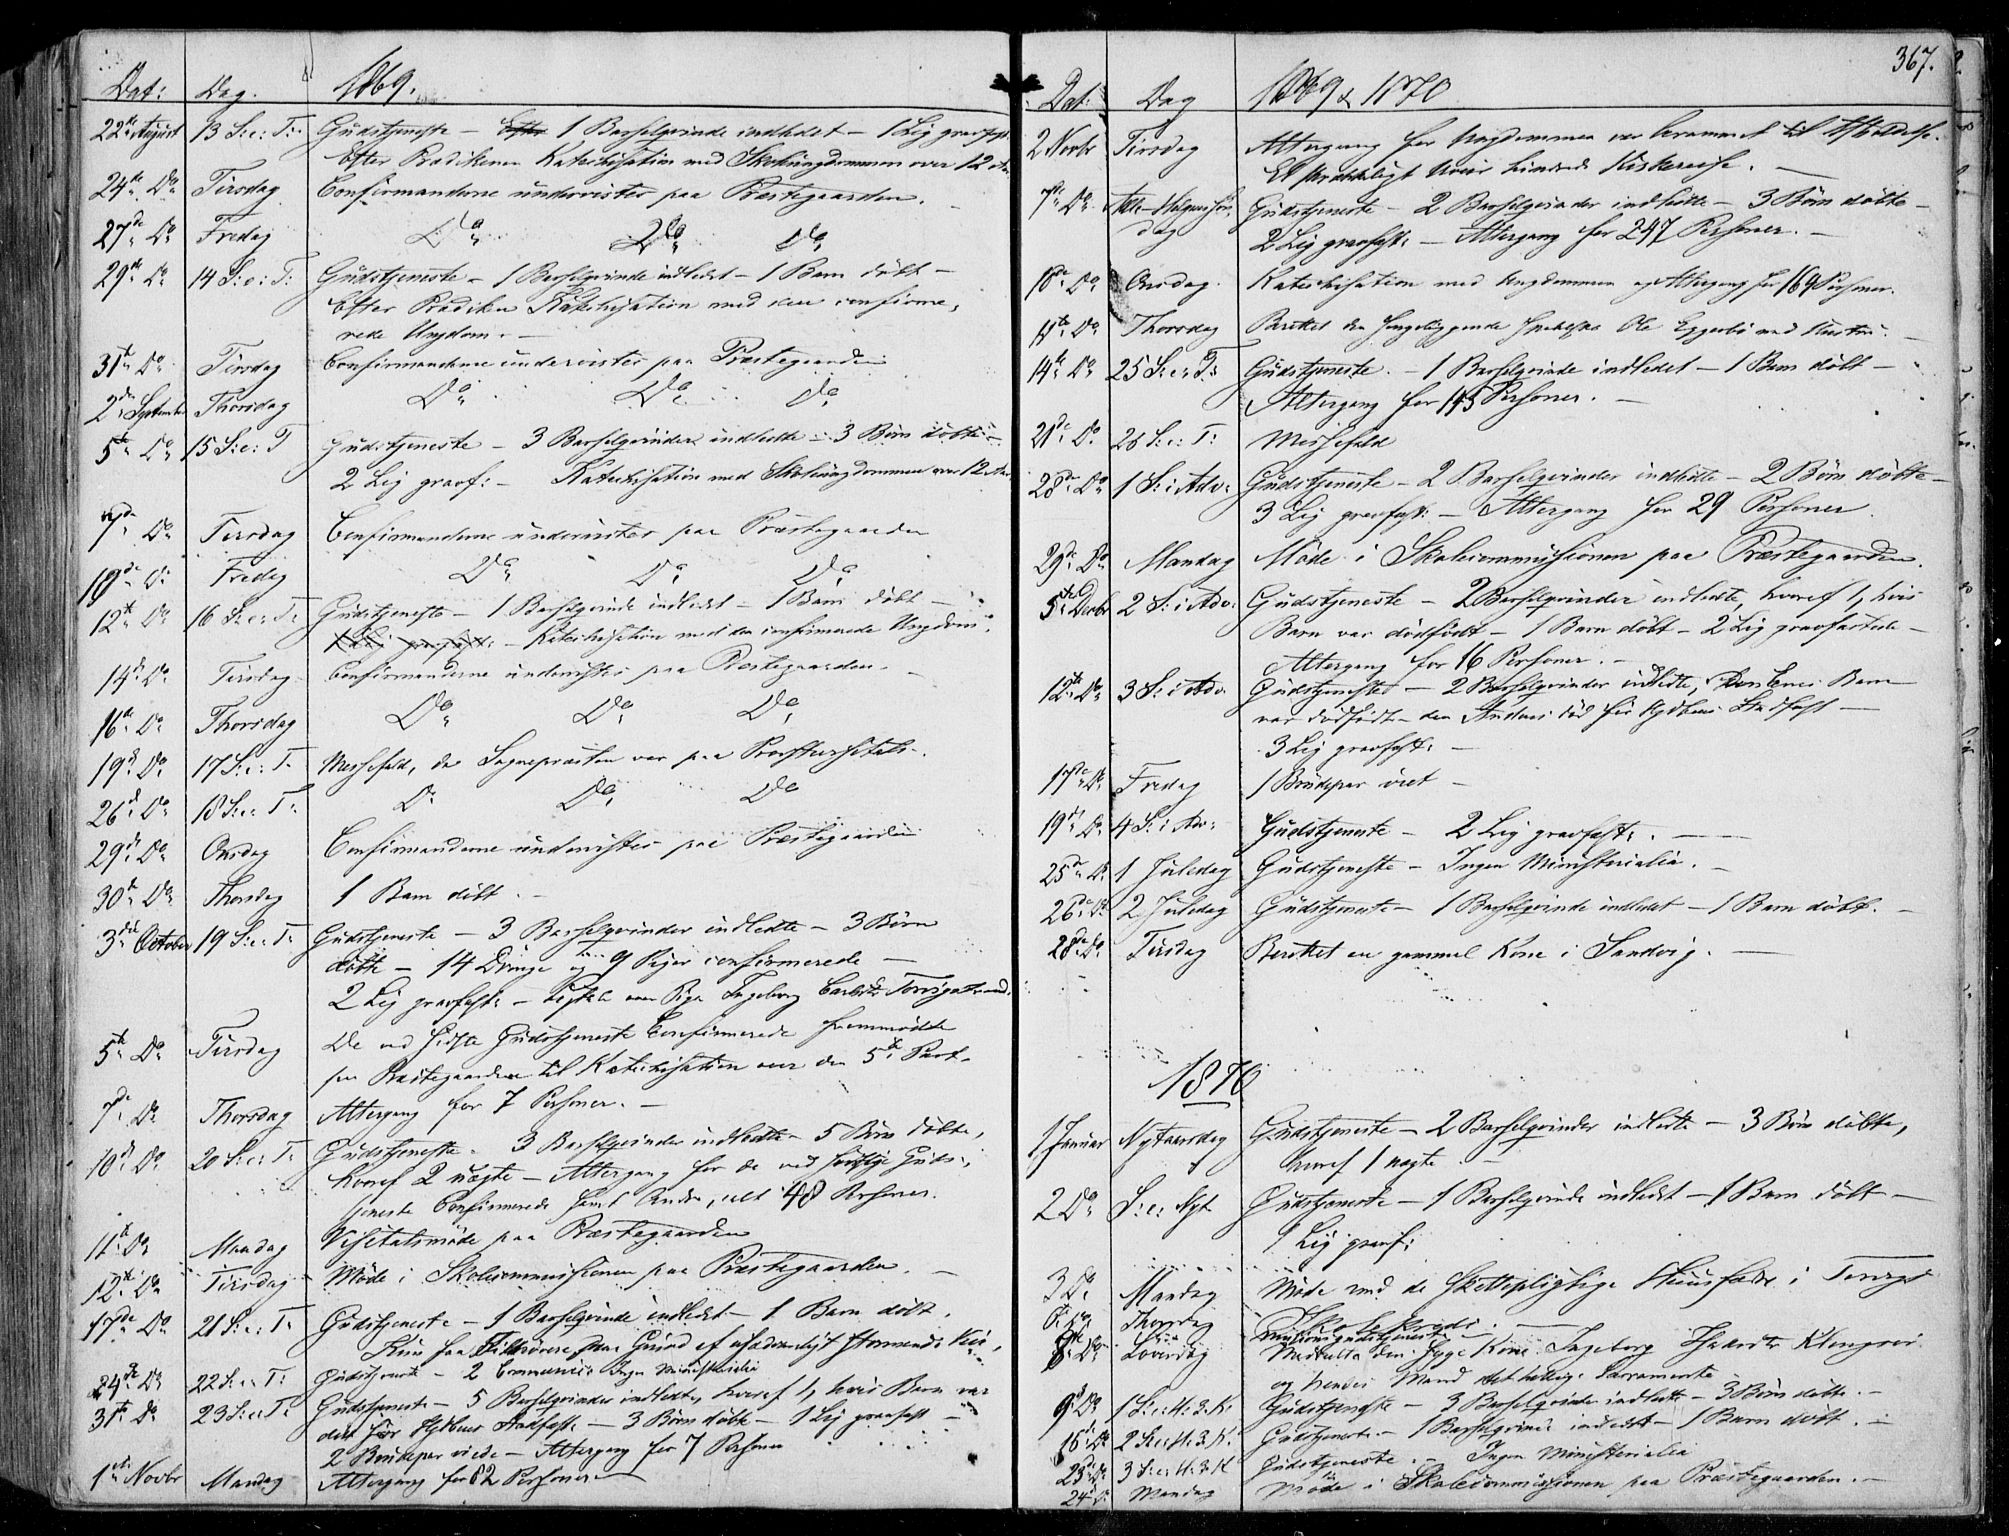 Dat: Dag. 1869.
22de August 13 S: e: T: Gudstjeneste – 1 Barselqvinde indledet – 1 Lig gravfæst.
Efter Prædikenen Katechisation med Skoleungdommen over 12 Aar.
24de Do Tirsdag Confirmanderne underviistes paa Præstegaarden.
27de Do Fredag Do Do Do
29de Do 14 S: e: T: Gudstjeneste – 1 Barselqvinde indledet – 1 Barn døbt –
Efter Prædiken Katechisation med den confirme-
rede Ungdom. –
31te Do Tirsdag Confirmanderne underviistes paa Præstegaarden
2den September Thorsdag Do Do Do
5te Do 15 S: e: T Gudstjeneste – 3 Barselqvinder indledte – 3 Børn døbte –
2 Lig gravf: – Katechisation med Skoleungdommen over 12 Aar
7de Do Tirsdag Confirmanderne underviistes paa Præstegaarden
10de Do Fredag Do Do Do
12te Do 16 S: e: T: Gudstjeneste – 1 Barselqvinde indledet – 1 Barn døbt –
– Katechisation med den confirmerede Ungdom.
14de Do Tirsdag Confirmanderne underviistes paa Præstegaarden. –
16de Do Thorsdag Do Do Do
19de Do 17 S: e: T. Messefald, da Sognepræsten var paa
26de Do 18 S: e: T: Do Do Do
29de Do Onsdag Confirmanderne underviistes paa Præstegaarden
30te Do Thorsdag 1 Barn døbt. –
3die October 19 S: e: T: Gudstjeneste – 3 Barselqvinder indledte – 3 Børn
døbte – 14 Drenge og 9 Piger confirmerede –
2 Lig gravfæst: – Pige Ingeborg
5te Do Tirsdag De ved sidste Gudstjeneste Confirmerede fremmødte
paa Præstegaarden til Katechisation over den 5te Part.
7de Do Thorsdag Altergang for 7 Personer. –
10de Do 20 S: e: T. Gudstjeneste. 3 Barselqvinder indledte – 5 Børn døbte,
hvoraf 2 uægte – Altergang for de ved forrige Guds-
tjeneste Confirmerede samt Andre, ialt 48 Personer.
11te Do Mandag Visitatsmøde paa Præstegaarden
12te Do Tirsdag Møde i Skolecommissionen paa Præstegaarden. –
17de Do 21 S: e: T: Gudstjeneste – 1 Barselqvinde indledet – 1 Barn døbt.
Kun faa Tilhørere paa Grund af usædvanligt stormende Veir,
24de Do 22 S: e: T: Gudstjeneste – 2 Ingen Ministerialia
31te Do 23 S: e: T: Gudstjeneste – 5 Barselqvinder indledte, hvoraf 1, hvis Barn var
død før Stadfæst. – 3 Børn døbte – 1 Lig gravfæst –
2 Brudepar viede – Altergang for 7 Personer
1ste Novbr Mandag Altergang for 82 Personer –
367.
Dat: Dag 1869 & 1870
2 Novbr Tirsdag Altergang for Ungdommen var berammet til Afholdelse.
Et Uveir hindrede Kirkereise. –
7de Do Alle-Helgens Søn- Gudstjeneste – 2 Barselqvinder indledte – 3 Børn døbte –
dag 2 Lig gravfæst: – Altergang for 247 Personer. –
10de Do Onsdag. Katechisation med Ungdommen og Altergang for 169 Personer.
11te Do Thorsdag Berettet den sengeliggende Ole Eggerbø med Hustru.
14de Do 25 S: e: T: Gudstjeneste. – 1 Barselqvinde indledet – 1 Barn døbt –
Altergang for 145 Personer. –
21de Do 26 S: e: T: Messefald
28de Do 1 S: i Adv: Gudstjeneste – 2 Barselqvinder indledte – 2 Børn døbte –
3 Lig gravfæst: – Altergang for 29 Personer
29de Do Mandag Møde i Skolecommissionen paa Præstegaarden.
5te Decbr 2 S: i Adv: Gudstjeneste – 2 Barselqvinder indledte, hvoraf 1, hvis
Barn var dødfødt – 1 Barn døbt – 2 Lig gravfæstede –
Altergang for 16 Personer. –
12te Do 3 S: i Adv. Gudstjeneste – 2 Barselqvinder indledte, Den Enes Barn
var dødfødt – den Andens død før Stadfæst –
3 Lig gravfæst: –
17de Do Fredag 1 Brudepar viet –
19de Do 4 S: i Adv: Gudstjeneste – 2 Lig gravfæst: . –
25de D 1 Juledag Gudstjeneste – Ingen Ministerialia. –
26de Do 2 Juledag Gudstjeneste – 1 Barselqvinde indledet – 1 Barn døbt. –
28de Do Tirsdag Berettet en gammel Kone i Sandvig. –
1870
1 Januar Nytaarsdag Gudstjeneste – 2 Barselqvinder indledte – 3 Børn døbte,
hvoraf 1 uægte –
2 Do S: e: Nyt Gudstjeneste – 1 Barselqvinde indledet – 1 Barn døbt –
1 Lig gravf:
3 Do Mandag Møde med de Skattepligtige Huusfædre i
Skolekreds. –
6 Do Thorsdag Missionsgudstjeneste –
8de Do Løverdag Meddeelte den syge Kone Ingeborg
og hendes Mand det hellige Sacramente
9de Do 1 S: e: H: 3. K. Gudstjeneste – 3 Barselqvinder indledte – 3 Børn døbte. –
16de Do 2 S: e: H: 3. K. Gudstjeneste. – 1 Barselqvinde indledet – 1 Barn døbt. –
23de Do 3 S: e: H: 3. K Gudstjeneste. – Ingen Ministerialia
24 Do Mandag Møde i Skolecommissionen paa Præstegaarden. –